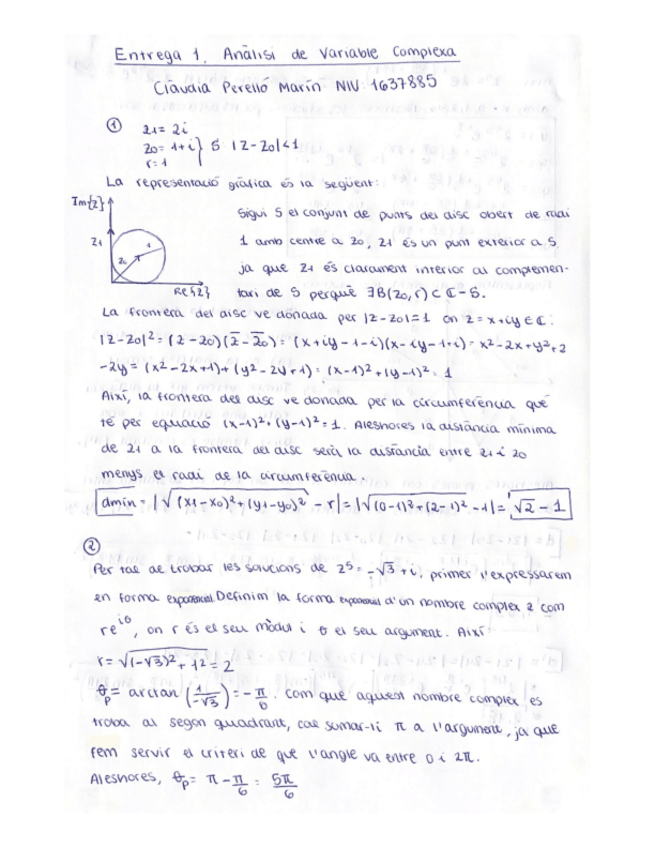 Entrega 1. Anàlisi de Variable Complexa
Clàudia Perelló Marín NIU: 1637885
① z1 = 2i
z0 = 1+i } S: |z-z0|<1
r=1
La representació gràfica és la següent:
Im{z}
z1
z0
1
Re{z}
Sigui S el conjunt de punts del disc obert de radi
1 amb centre a z0, z1 és un punt exterior a S
ja que z1 és clarament interior al complemen-
tari de S perquè ∃B(z0,r) ⊂ ℂ - S.
La frontera del disc ve donada per |z-z0|=1 on z=x+iy ∈ ℂ:
|z-z0|² = (z-z0)(z̄-z̄0) = (x+iy-1-i)(x-iy-1+i) = x²-2x+y²+2
-2y = (x²-2x+1)+(y²-2y+1) = (x-1)²+(y-1)² = 1
Així, la frontera del disc ve donada per la circumferència que
té per equació (x-1)²+(y-1)²=1. Aleshores la distància mínima
de z1 a la frontera del disc serà la distància entre z1 i z0
menys el radi de la circumferència.
dmín = |√((x1-x0)²+(y1-y0)²) - r| = |√((0-1)²+(2-1)²) -1| = √2 - 1
②
Per tal de trobar les solucions de z⁵ = -√3 + i, primer l'expressarem
en forma exponencial. Definim la forma exponencial d'un nombre complex z com
re^{iθ}, on r és el seu mòdul i θ el seu argument. Així:
r = √((-√3)² + 1²) = 2
θp = arctan (1/-√3) = -π/6. Com què aquest nombre complex es
troba al segon quadrant, cal sumar-li π a l'argument, ja que
fem servir el criteri de què l'angle va entre 0 i 2π.
Aleshores, θp = π - π/6 = 5π/6